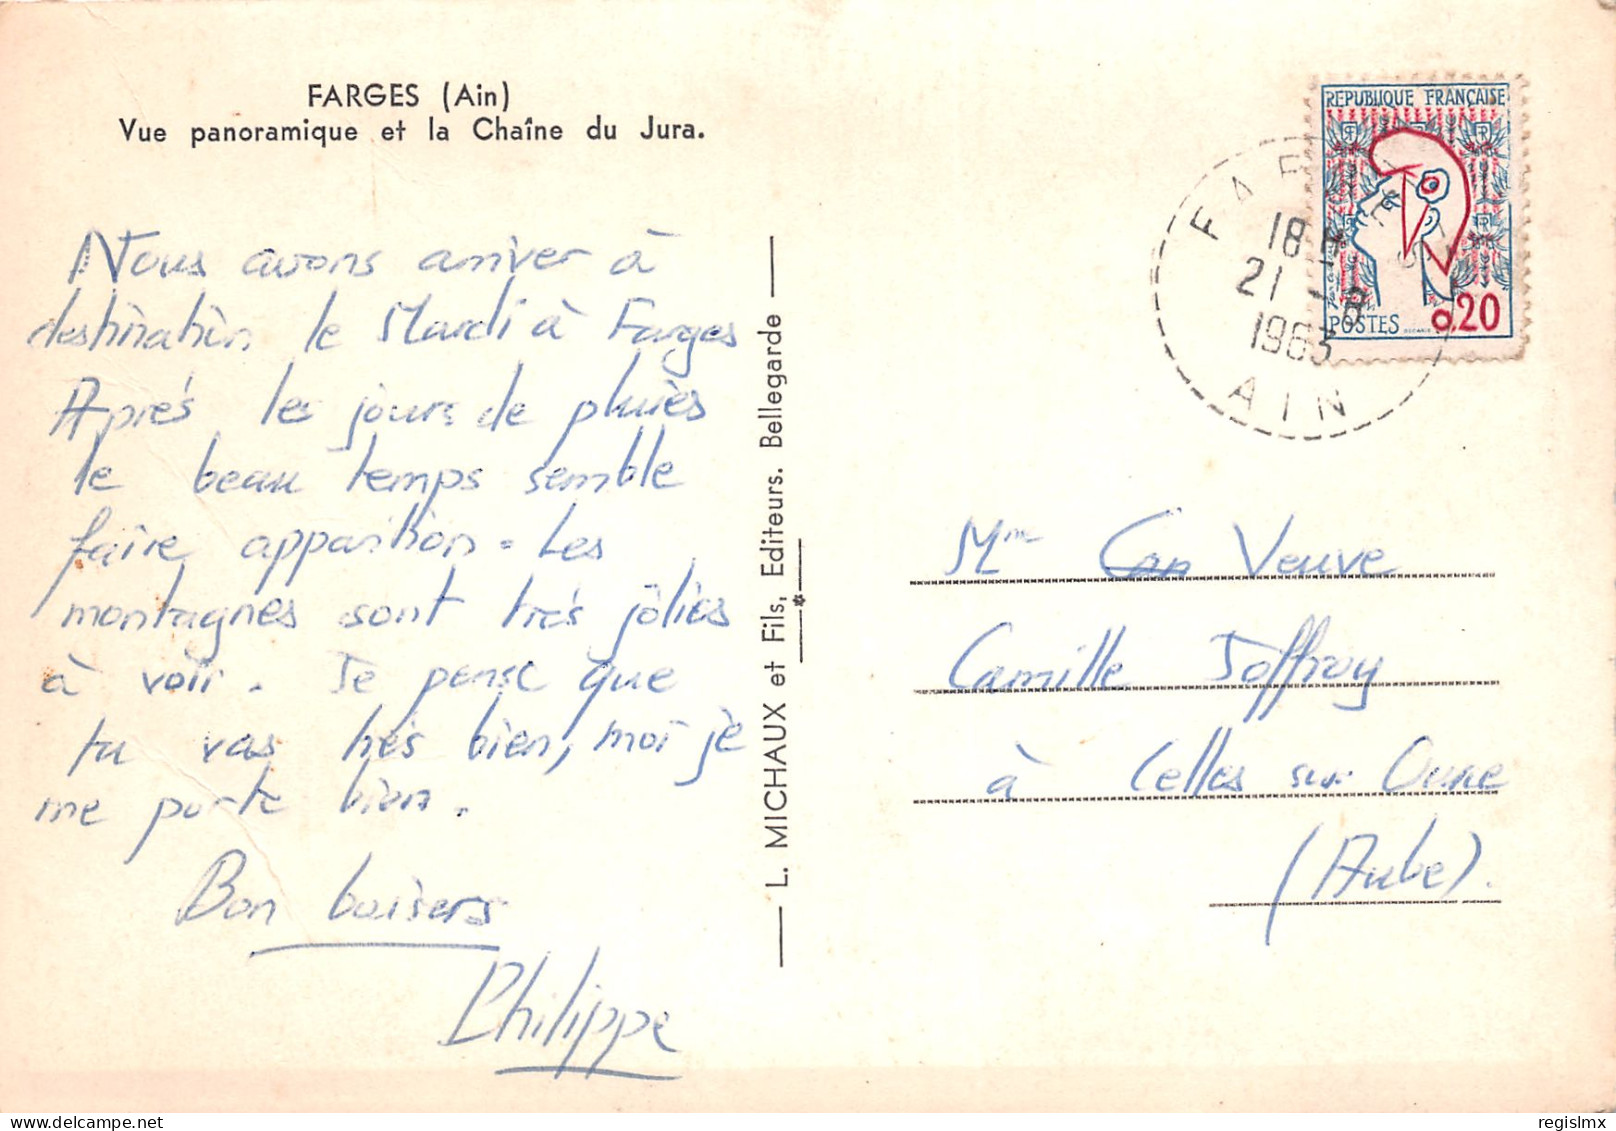 FARGES (Ain)
Vue panoramique et la Chaîne du Jura.
Nous avons arriver à
destination le Mardi à Farges
Aprés les jours de pluies
le beau temps semble
faire apparition. Les
montagnes sont trés jolies
à voir. Je pense que
tu vas trés bien, moi je
me porte bien.
Bon baisers
Philippe
L. MICHAUX et Fils, Editeurs. Bellegarde
REPUBLIQUE FRANÇAISE
POSTES 0.20
FARGES
18 H
21 -8
1963
AIN
Mme Veuve
Camille Joffroy
à Celles sur Ource
(Aube).
regislmx